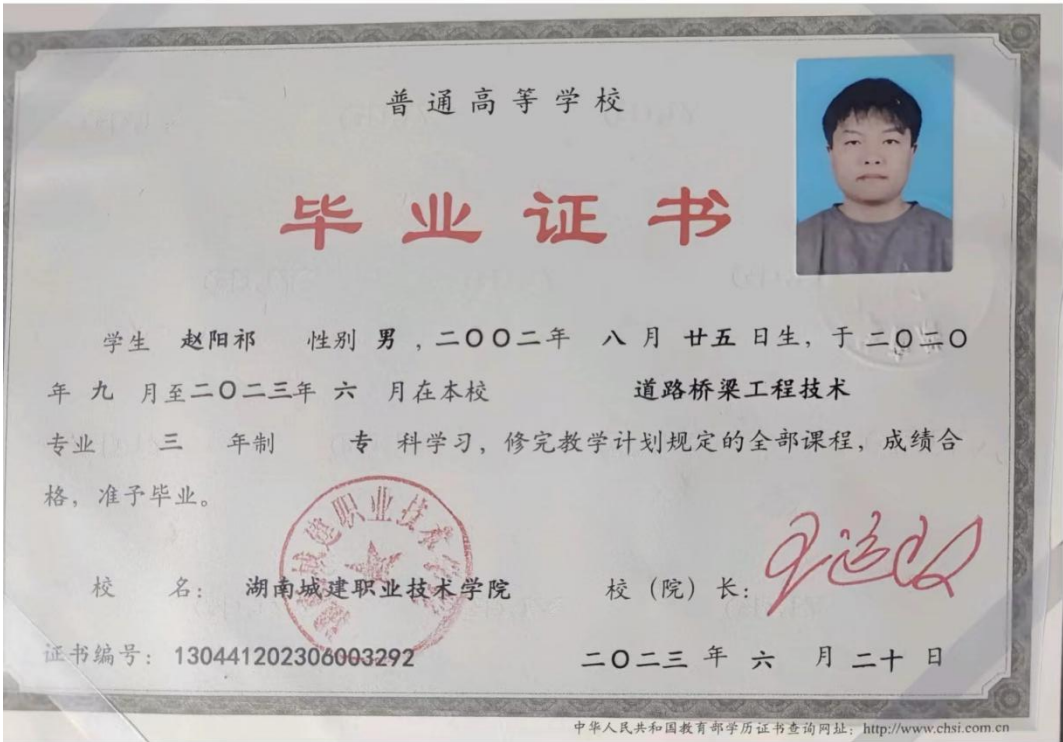 普通高等学校
毕业证书
学生 赵阳祁 性别 男 ，二〇〇二年 八 月 廿五 日生，于 二〇二〇
年 九 月至二〇二三年 六 月在本校 道路桥梁工程技术
专业 三 年制 专 科学习，修完教学计划规定的全部课程，成绩合
格，准予毕业。
湖南城建职业技术学院
校 名： 湖南城建职业技术学院 校（院）长：
证书编号： 130441202306003292 二〇二三 年 六 月 二十 日
中华人民共和国教育部学历证书查询网址：http://www.chsi.com.cn